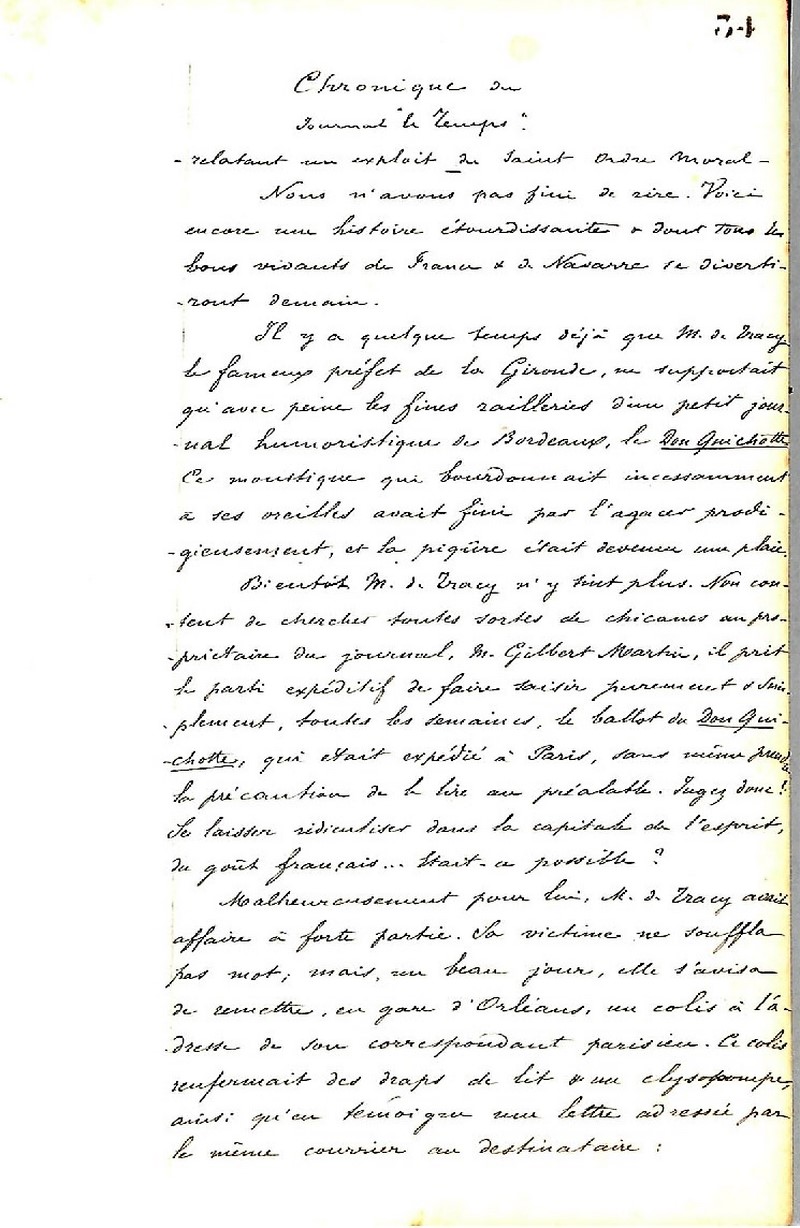 34
Chronique du
Journal "le Temps".
- relatant un exploit du Saint Ordre Moral -
Nous n'avons pas fini de rire. Voici
encore une histoire étourdissante & dont tous les
bons vivants de France & de Navarre se diverti-
-ront demain.
Il y a quelque temps déjà que M. de Tracy
le fameux préfet de la Gironde, ne supportait
qu'avec peine les fines railleries d'un petit jour-
-nal humoristique de Bordeaux, le Don Quichotte
Ce moustique qui bourdonnait incessamment
à ses oreilles avait fini par l'agacer prodi-
-gieusement, et la piqûre était devenue une plaie.
Bientôt M. de Tracy n'y tint plus. Non con-
-tent de chercher toutes sortes de chicanes au pro-
-priétaire du journal, M. Gilbert Martin, il prit
le parti expéditif de faire saisir purement & sim-
-plement, toutes les semaines, le ballot du Don Qui-
-chotte, qui était expédié à Paris, sans même prendre
la précaution de le lire au préalable. Jugez donc!
Se laisser ridiculiser dans la capitale de l'esprit,
du goût français... Était-ce possible ?
Malheureusement pour lui, M. de Tracy avait
affaire à forte partie. Sa victime ne souffla
pas mot; mais, un beau jour, elle s'avisa
de remettre, en gare d'Orléans, un colis à l'a-
-dresse de son correspondant parisien. Ce colis
renfermait des draps de lit & un clysopompe,
ainsi qu'en témoigne une lettre adressée par
le même courrier au destinataire :